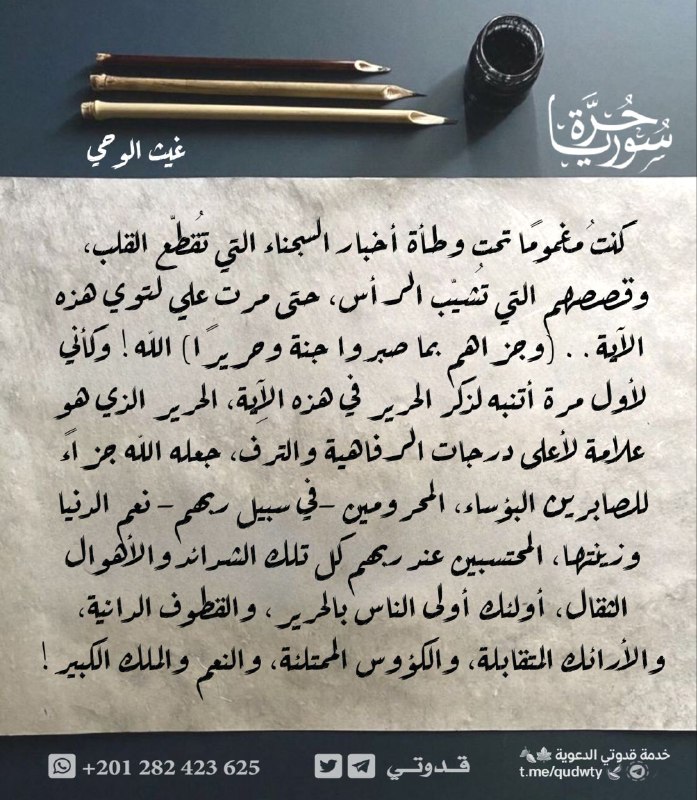 سُوريا حُرَّة
غيث الوحي
كنتُ مغمومًا تحت وطأة أخبار السجناء التي تُقطّع القلب،
وقصصهم التي تُشيّب الرأس، حتى مرت علي لتوي هذه
الآية.. (وجزاهم بما صبروا جنة وحريرًا) الله! وكأني
لأول مرة أتنبه لذكر الحرير في هذه الآية، الحرير الذي هو
علامة لأعلى درجات الرفاهية والترف، جعله الله جزاءً
للصابرين البؤساء، المحرومين -في سبيل ربهم- نعم الدنيا
وزينتها، المحتسبين عند ربهم كل تلك الشدائد والأهوال
الثقال، أولئك أولى الناس بالحرير، والقطوف الدانية،
والأرائك المتقابلة، والكؤوس الممتلئة، والنعم والملك الكبير!
خدمة قدوتي الدعوية
t.me/qudwty
قدوتي
+201 282 423 625